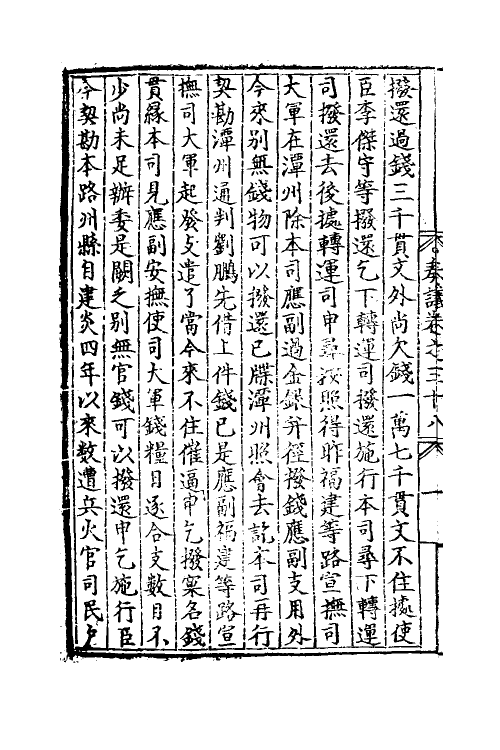 奏議卷之三十八
一
撥還過錢三千貫文外尚欠錢一萬七千貫文不住據使
臣李傑守等撥還乞下轉運司撥還施行本司尋下轉運
司撥還去後據轉運司申尋按照得昨福建等路宣撫司
大軍在潭州除本司應副過金銀并徑撥錢應副支用外
今來別無錢物可以撥還已牒潭州照會去訖本司再行
契勘潭州通判劉鵬先借上件錢已是應副福建等路宣
撫司大軍起發支遣了當今來不住催逼申乞撥窠名錢
貫緣本司見應副安撫使司大軍錢糧目逐合支數目不
少尚未足辦委是闕乏別無官錢可以撥還申乞施行臣
今契勘本路州縣自建炎四年以來數遭兵火官司民戶